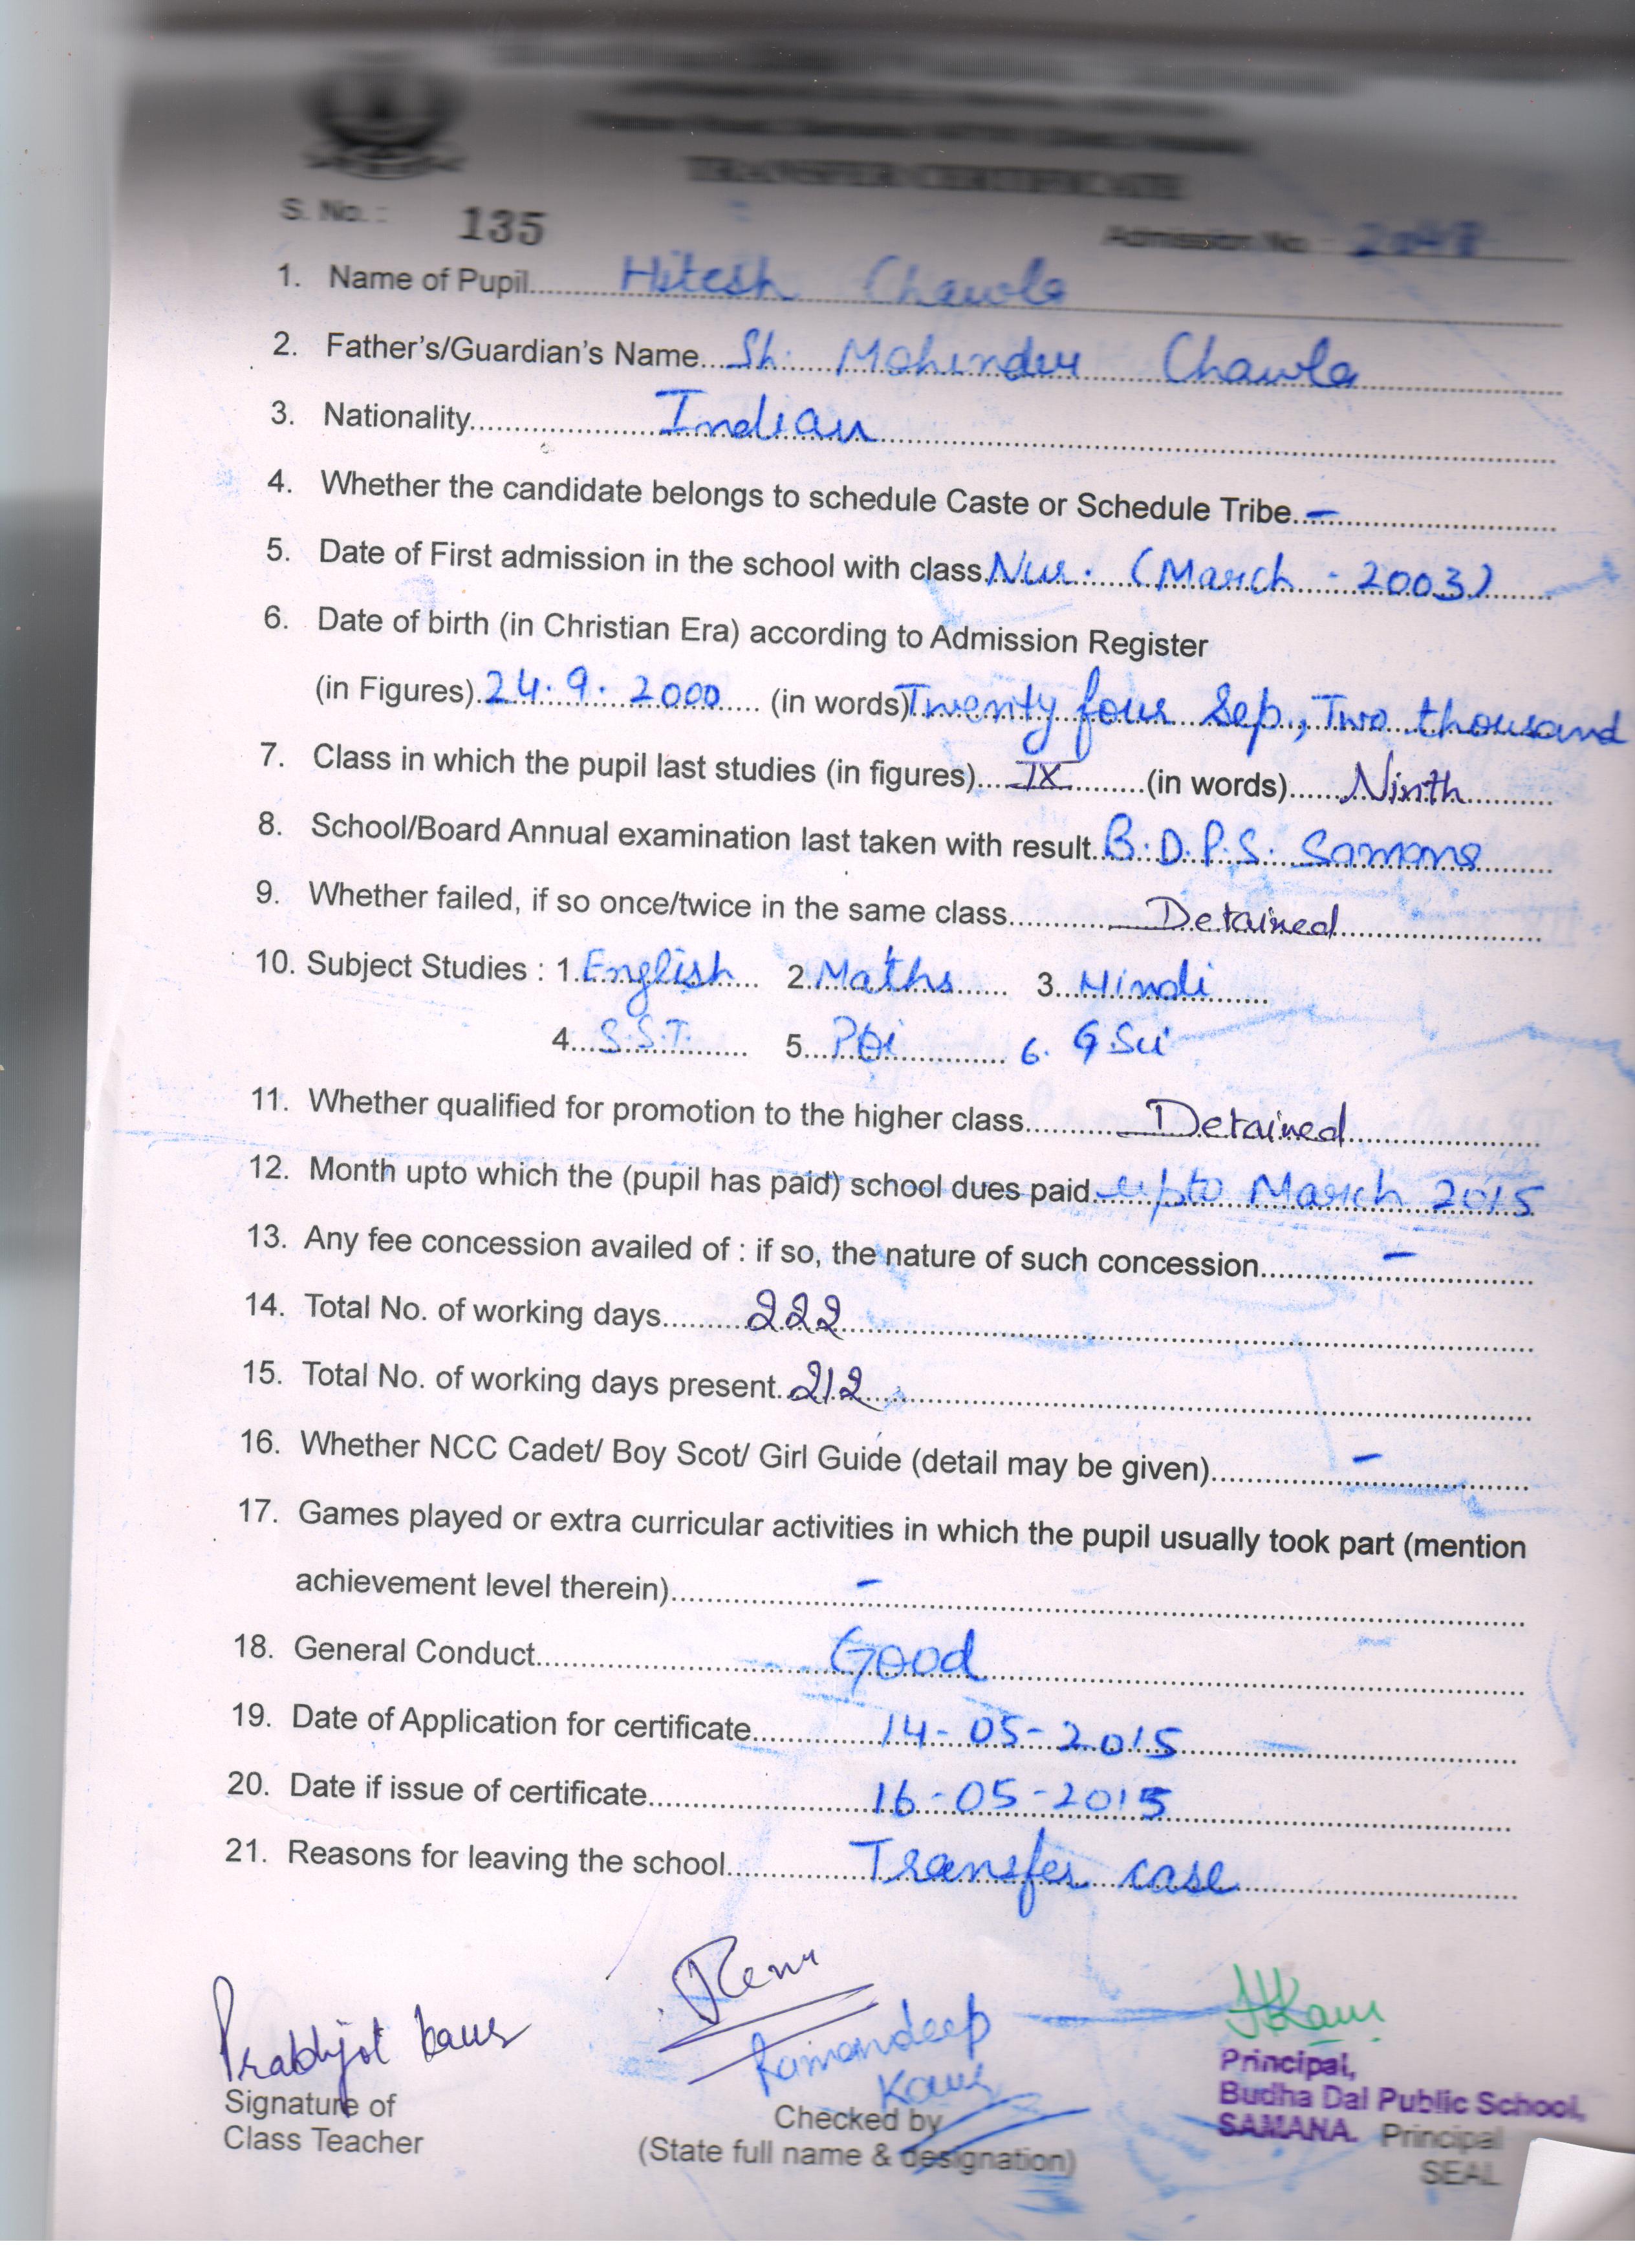 TRANSFER CERTIFICATE
S. No. : 135 Admission No. :
1. Name of Pupil Hitesh Chawla
2. Father's/Guardian's Name Sh. Mohinder Chawla
3. Nationality Indian
4. Whether the candidate belongs to schedule Caste or Schedule Tribe -
5. Date of First admission in the school with class Nur. (March - 2003)
6. Date of birth (in Christian Era) according to Admission Register
(in Figures) 24.9.2000 (in words) Twenty four Sep., Two thousand
7. Class in which the pupil last studies (in figures) IX (in words) Ninth
8. School/Board Annual examination last taken with result B.D.P.S. Samana
9. Whether failed, if so once/twice in the same class Detained
10. Subject Studies : 1. English 2. Maths 3. Hindi
4. S.S.T. 5. Pbi 6. G.Sci
11. Whether qualified for promotion to the higher class Detained
12. Month upto which the (pupil has paid) school dues paid upto March 2015
13. Any fee concession availed of : if so, the nature of such concession -
14. Total No. of working days 222
15. Total No. of working days present 212
16. Whether NCC Cadet/ Boy Scot/ Girl Guide (detail may be given) -
17. Games played or extra curricular activities in which the pupil usually took part (mention
achievement level therein) -
18. General Conduct Good
19. Date of Application for certificate 14-05-2015
20. Date if issue of certificate 16-05-2015
21. Reasons for leaving the school Transfer case
Prabhjot Kaur
Signature of
Class Teacher
Ramandeep
Kaur
Checked by
(State full name & designation)
Principal,
Budha Dal Public School,
SAMANA.
Principal
SEAL